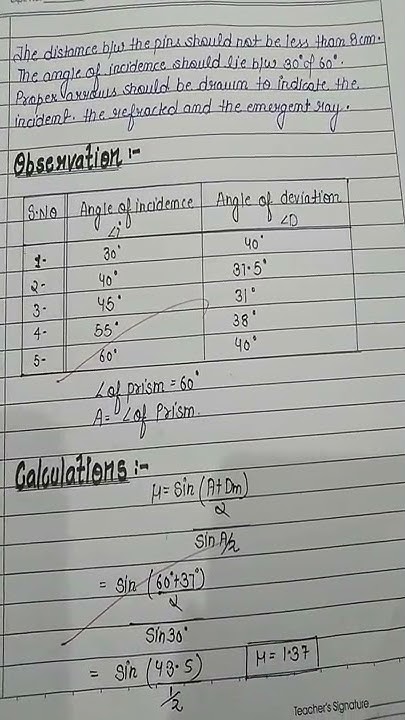 The distance b/w the pins should not be less than 8cm.
The angle of incidence should lie b/w 30° of 60°.
Proper arrows should be drawn to indicate the
incident. the refracted and the emergent ray.
Observation :-
S.No Angle of incidence ∠i Angle of deviation ∠D
1- 30° 40°
2- 40° 37.5°
3- 45° 31°
4- 55° 38°
5- 60° 40°
∠of prism = 60°
A= ∠of Prism.
Calculations :-
μ = Sin (A+Dm)
2
Sin A/2
= Sin (60°+37°)
2
Sin30°
= Sin (43.5) μ = 1.37
1/2
Teacher's Signature